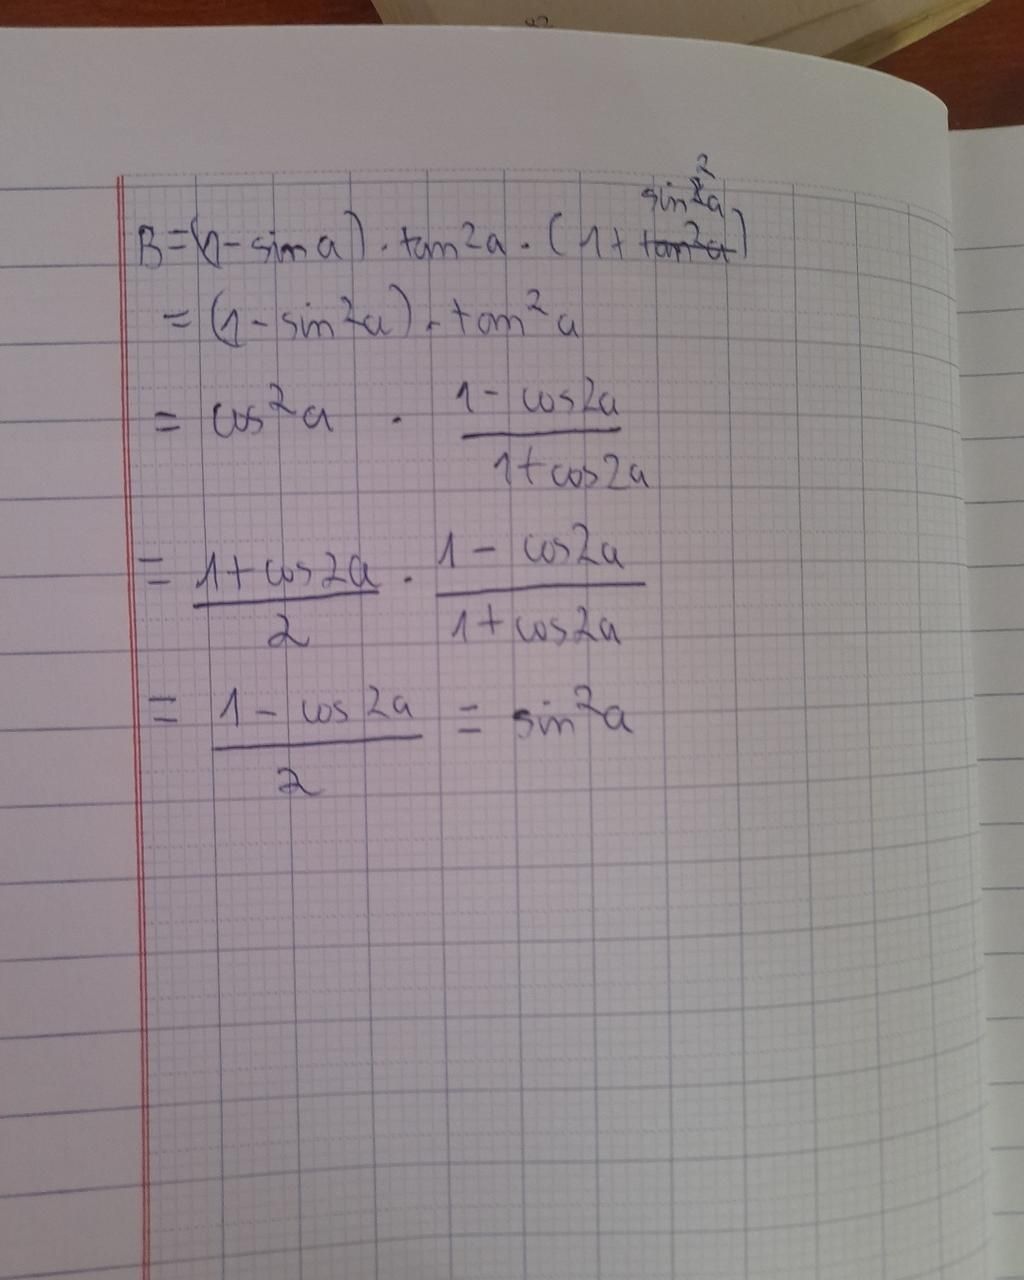 B = (1 - sin a) . tan 2a . (1 + sin²a)
= (1 - sin²a) . tan²a
= cos²a . (1 - cos2a)/(1 + cos2a)
= (1 + cos2a)/2 . (1 - cos2a)/(1 + cos2a)
= (1 - cos2a)/2 = sin²a